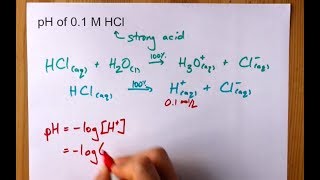 pH of 0.1 M HCl
strong acid
HCl(aq) + H₂O(l) 100% → H₃O⁺(aq) + Cl⁻(aq)
HCl(aq) 100% → H⁺(aq) + Cl⁻(aq)
0.1 mol/L
pH = -log[H⁺]
= -log(